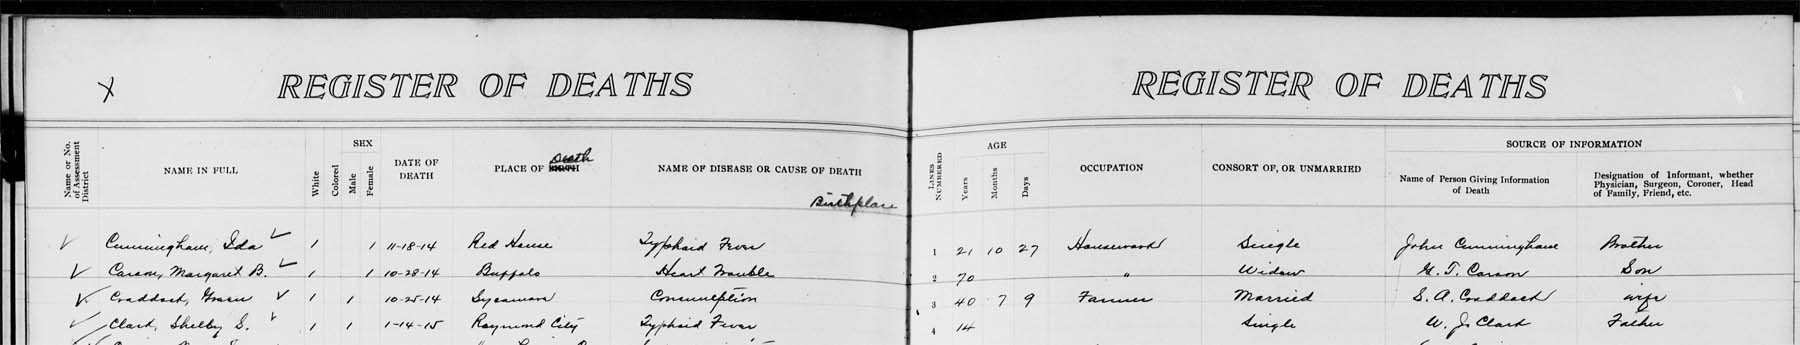 REGISTER OF DEATHS REGISTER OF DEATHS
Name or No. of Assessment District
NAME IN FULL
White
Colored
SEX
Male
Female
DATE OF DEATH
PLACE OF BIRTH Death
NAME OF DISEASE OR CAUSE OF DEATH
Birthplace
LINES NUMBERED
AGE
Years
Months
Days
OCCUPATION
CONSORT OF, OR UNMARRIED
SOURCE OF INFORMATION
Name of Person Giving Information of Death
Designation of Informant, whether Physician, Surgeon, Coroner, Head of Family, Friend, etc.
Cunningham, Ida 1 1 11-18-14 Red House Typhoid Fever 1 21 10 27 Housework Single John Cunningham Brother
Carson, Margaret B. 1 1 10-28-14 Buffalo Heart Trouble 2 70 " Widow G. T. Carson Son
Craddock, 1 1 10-25-14 Sycamore Consumption 3 40 7 9 Farmer Married S. A. Craddock wife
Clark, Shelby S. 1 1 1-14-15 Raymond City Typhoid Fever 4 14 Single W. J. Clark Father